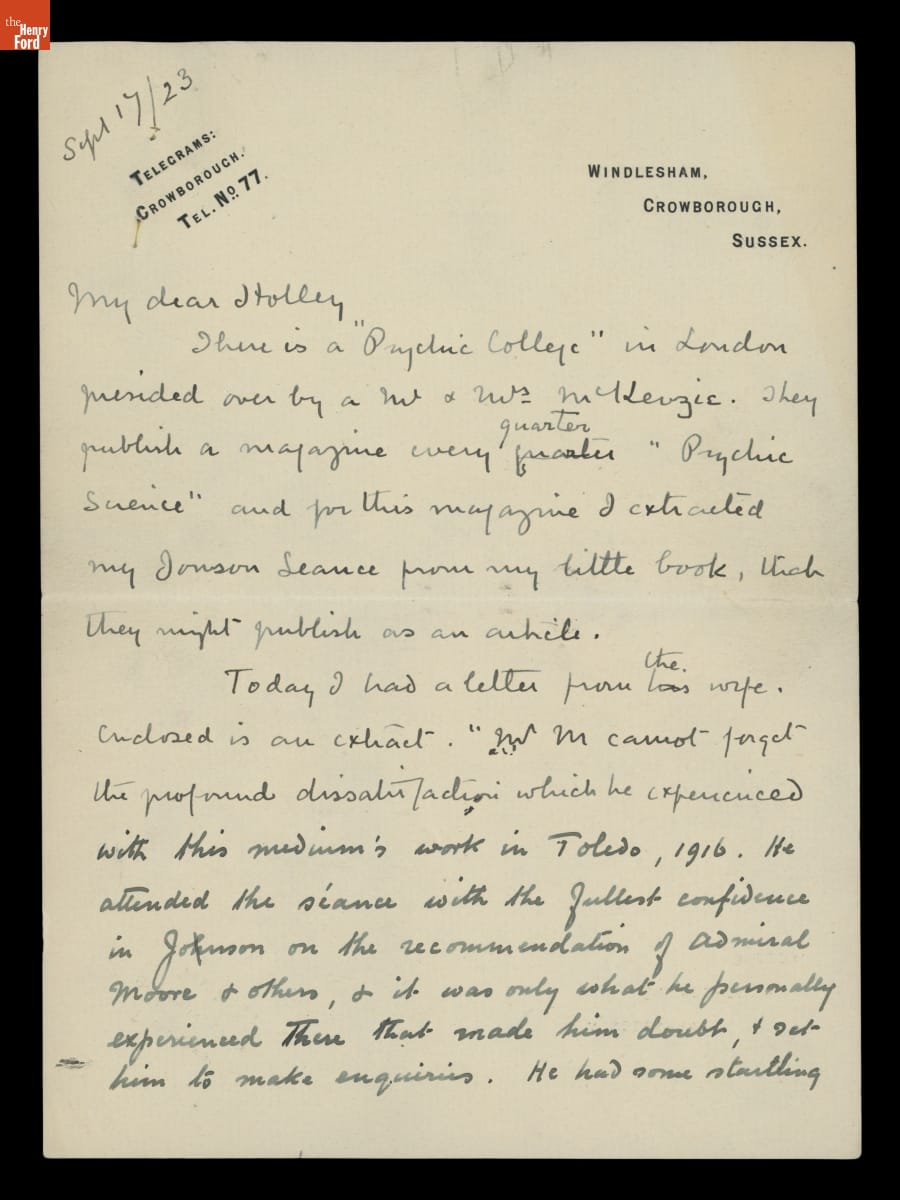 the
Henry
Ford
Sept 17/23
TELEGRAMS:
CROWBOROUGH.
TEL. No. 77.
WINDLESHAM,
CROWBOROUGH,
SUSSEX.
My dear Holley
There is a "Psychic College" in London
presided over by a Mr & Mrs McKenzie. They
quarter
publish a magazine every quarter " Psychic
Science" and for this magazine I extracted
my Jonson Seance from my little book, that
they might publish as an article.
the.
Today I had a letter from his wife.
Enclosed is an extract. "Mr M cannot forget
the profound dissatisfaction which he experienced
with this medium's work in Toledo, 1916. He
attended the séance with the fullest confidence
in Johnson on the recommendation of Admiral
Moore & others, & it was only what he personally
experienced there that made him doubt, & set
him to make enquiries. He had some startling